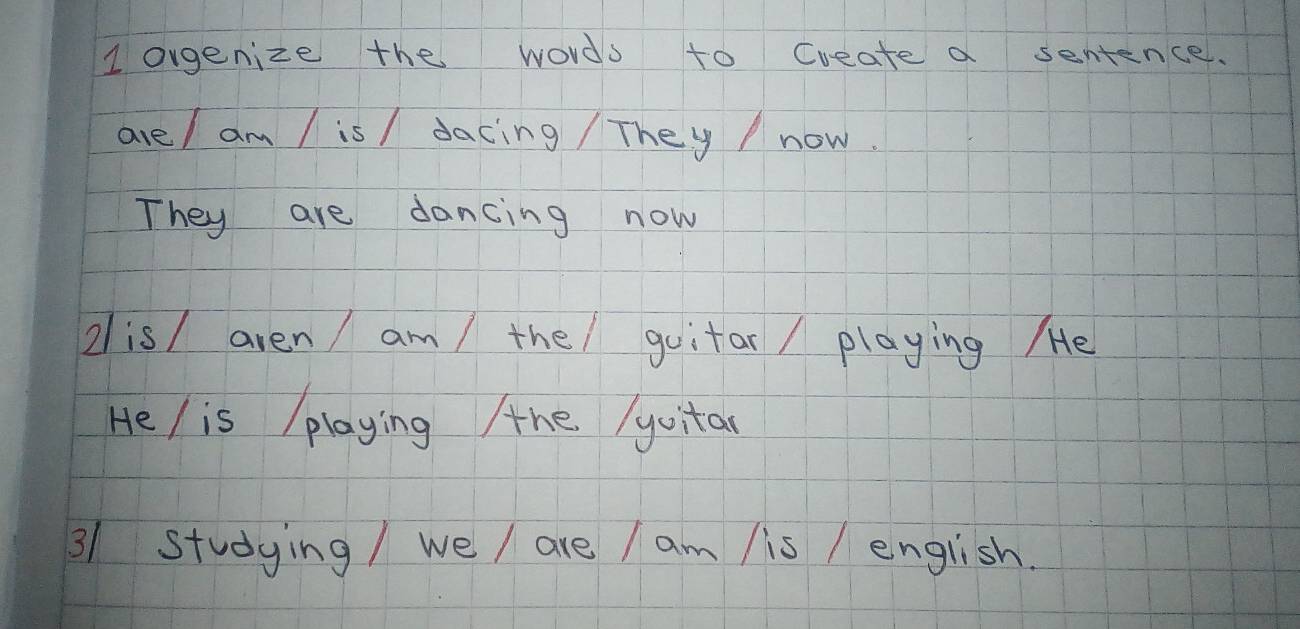 1 orgenize the words to create a sentence.
are / am / is / dacing / They / now.
They are dancing now
2/ is / aren / am / the / guitar / playing / He
He / is / playing / the / guitar
3/ studying / we / are / am / is / english.